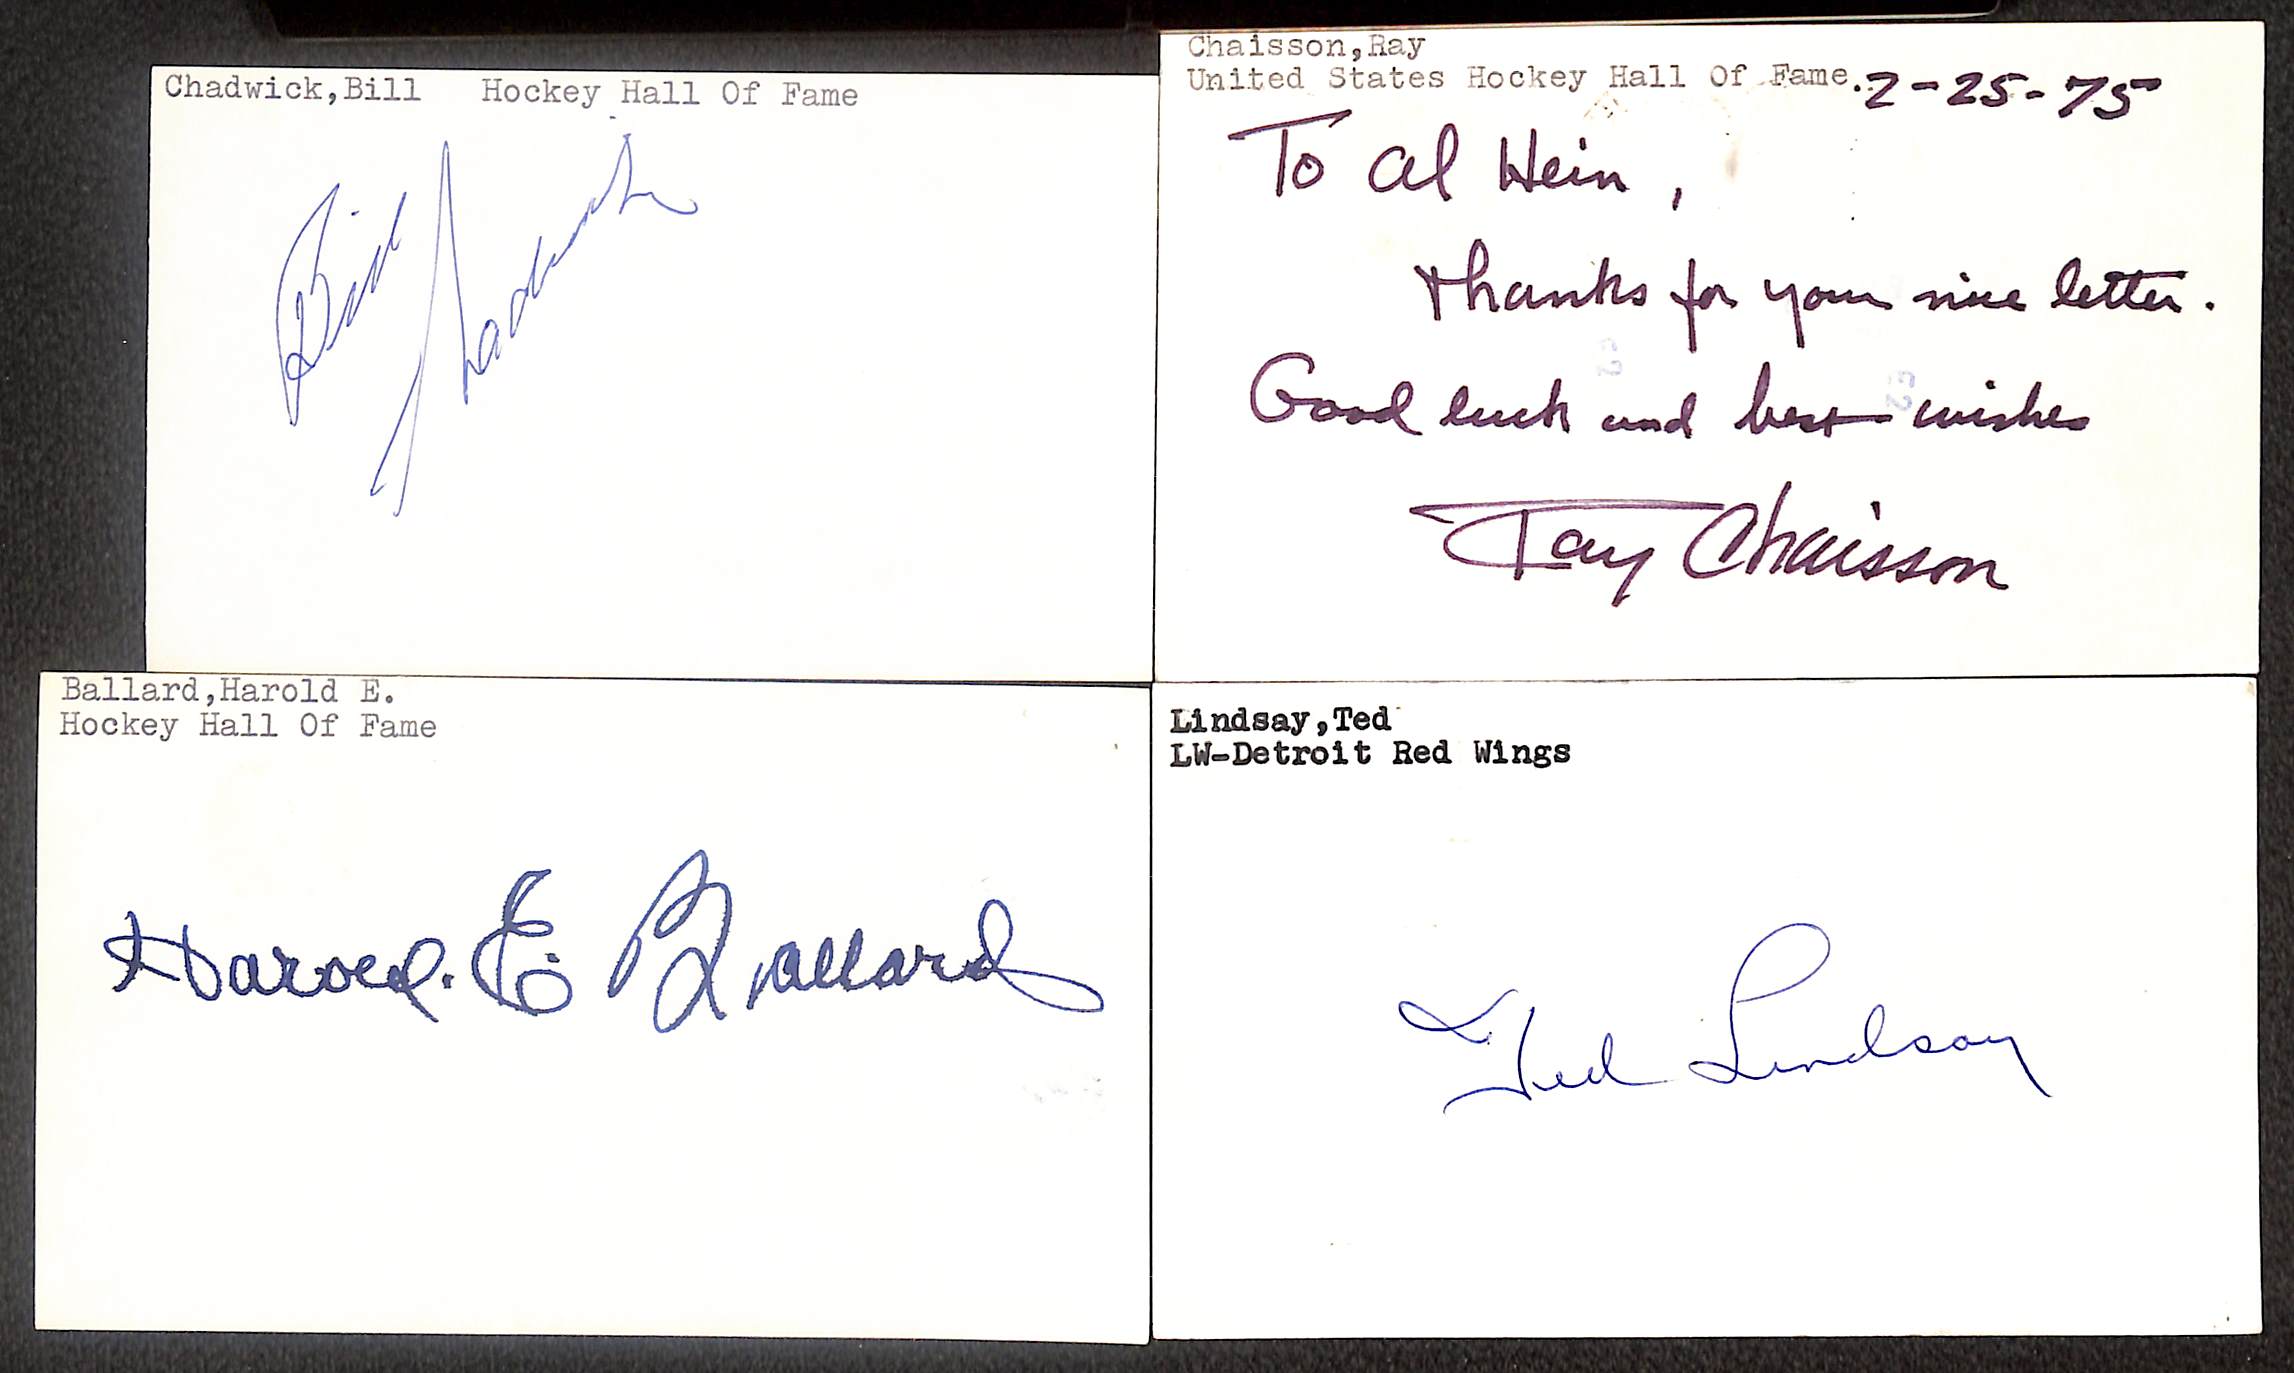 Chadwick,Bill Hockey Hall Of Fame
Bill Chadwick
Chaisson,Ray
United States Hockey Hall Of Fame.
2-25-75
To Al Hein,
thanks for your nice letter.
Good luck and best wishes
Ray Chaisson
Ballard,Harold E.
Hockey Hall Of Fame
Harold E. Ballard
Lindsay,Ted
LW-Detroit Red Wings
Ted Lindsay